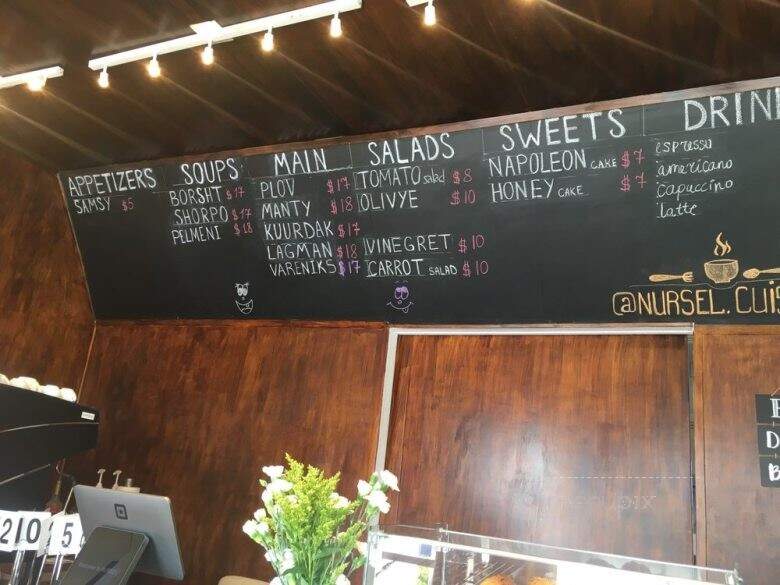 APPETIZERS
SAMSY $5
SOUPS
BORSHT $17
SHORPO $17
PELMENI $18
MAIN
PLOV $17
MANTY $18
KUURDAK $17
LAGMAN $18
VARENIKS $17
SALADS
TOMATO salad $8
OLIVYE $10
VINEGRET $10
CARROT SALAD $10
SWEETS
NAPOLEON CAKE $7
HONEY CAKE $7
DRIN
espresso
americano
capuccino
latte
@NURSEL.CUIS
D
B
210
5